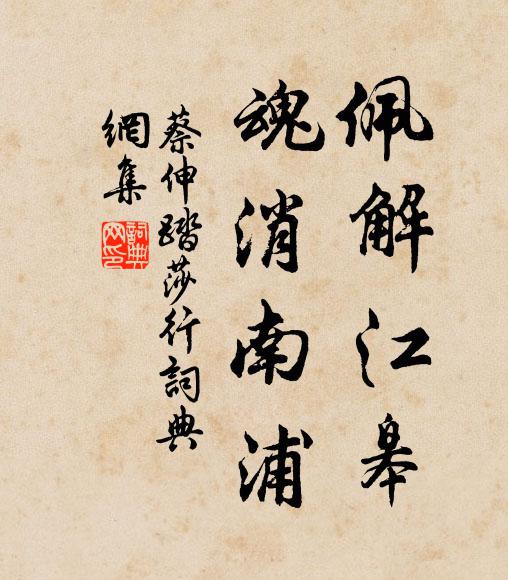 佩解江皋
魂消南浦
蔡伸踏莎行詞典
網集
詞典
网印